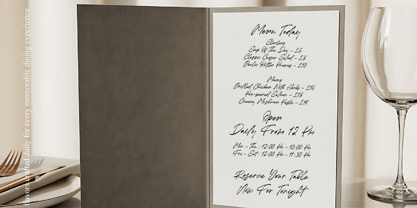 Menu Today
Starters
Soup Of The Day - £6
Classic Caesar Salad - £8
Garlic Butter Prawns - £10
Mains
Grilled Chicken With Herbs - £16
Pan-seared Salmon - £18
Creamy Mushroom Pasta - £14
Open
Daily From 12 Pm
Mon - Thu : 12:00 Pm - 10:00 Pm
Fri - Sat : 12:00 Pm - 11:30 Pm
Reserve Your Table
Now For Tonight
daily for every memorable dining experience.